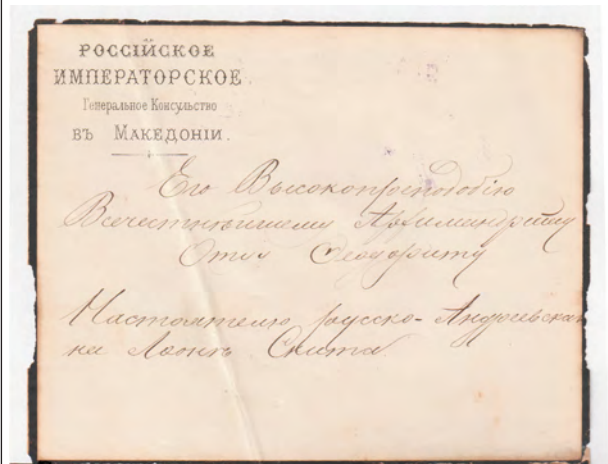 РОССІЙСКОЕ
ИМПЕРАТОРСКОЕ.
Генеральное Консульство
ВЪ МАКЕДОНІИ.
Его Высокопреподобію
Всечестнѣйшему Архимандриту
Отцу Ѳеодориту
Настоятелю русско-Андреевскаго
на Аѳонѣ Скита.